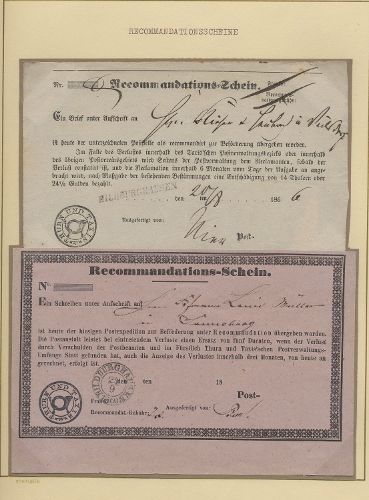 RECOMMANDATIONSSCHEINE
Nr. 6 Recommandations-Schein.
Ein Brief unter Aufschrift an
ist heute der unterzeichneten Poststelle als recommandirt zur Beförderung übergeben worden.
Im Falle des Verlustes innerhalb des Taxis'schen Postverwaltungsbezirks oder innerhalb
des übrigen Postvereinsgebiets wird Seitens der Postverwaltung dem Reclamanten, sobald der
Verlust constatirt ist, und die Reclamation innerhalb 6 Monaten vom Tage der Aufgabe an ange-
bracht wird, nach Maßgabe der bestehenden Bestimmungen eine Entschädigung von 14 Thalern oder
24½ Gulden bezahlt.
HILDBURGHAUSEN
den 20/8 1866
Ausgefertigt von:
Post-
THURN UND TAXIS
Recommandations-Schein.
No
Ein Schreiben unter Aufschrift an Louis Müller
in Sonneberg
ist heute der hiesigen Postexpedition zur Beförderung unter Recommandation übergeben worden.
Die Postanstalt leistet bei eintretendem Verluste einen Ersatz von fünf Ducaten, wenn der Verlust
durch Verschulden des Postbeamten und im Fürstlich Thurn und Taxisschen Postverwaltungs-
Umfange Statt gefunden hat, auch die Anzeige des Verlustes innerhalb drei Monaten, von heute an
gerechnet, erfolgt ist.
HILDBURGHAUSEN
den 18
Post-
Franco
Recommandat.-Gebühr:
Ausgefertigt von:
THURN UND TAXIS